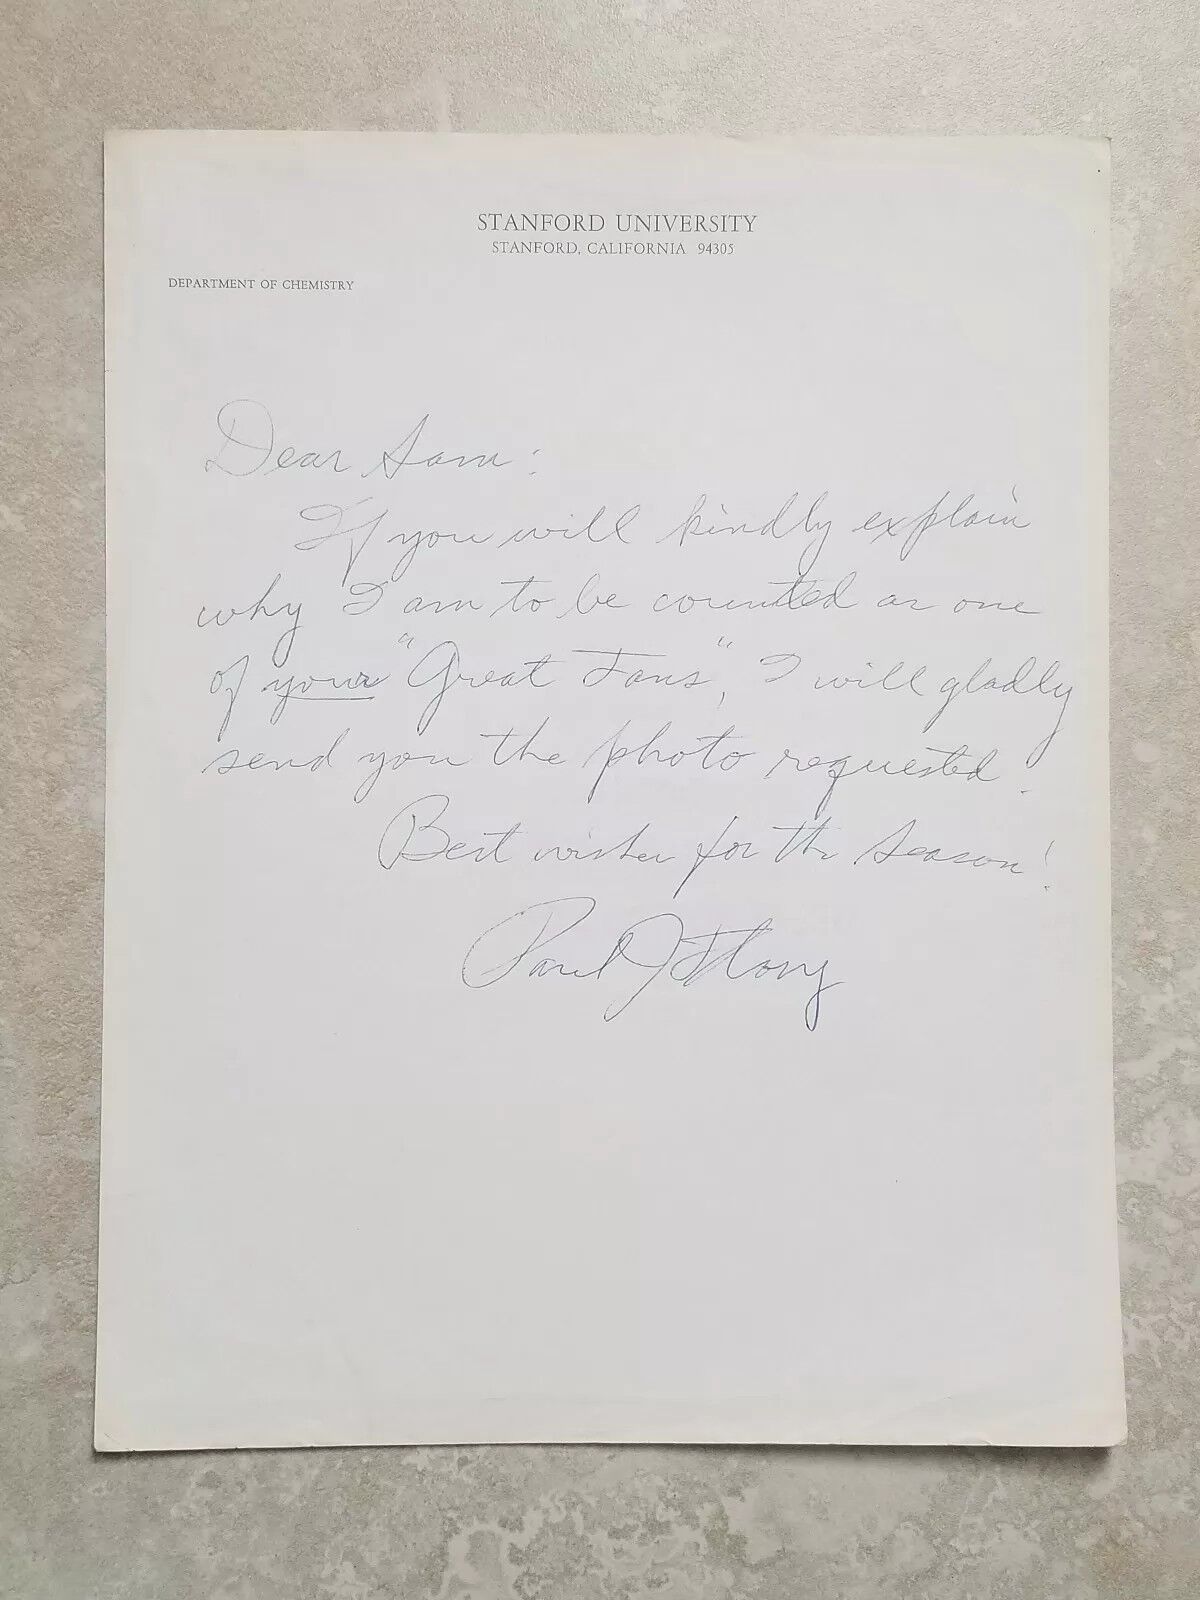 STANFORD UNIVERSITY
STANFORD, CALIFORNIA 94305
DEPARTMENT OF CHEMISTRY
Dear Sam:
If you will kindly explain
why I am to be counted as one
of your "Great Fans", I will gladly
send you the photo requested.
Best wishes for the season!
Paul J Flory